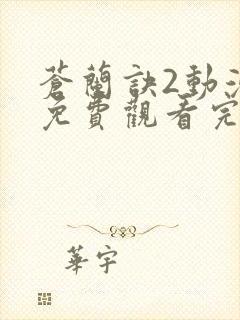 蒼蘭訣2動
免費觀看完
華宇